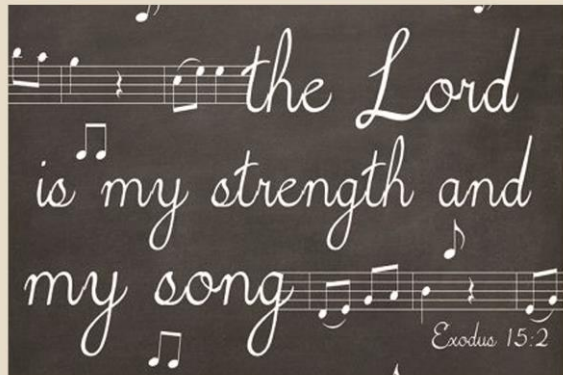 the Lord
is my strength and
my song
Exodus 15:2